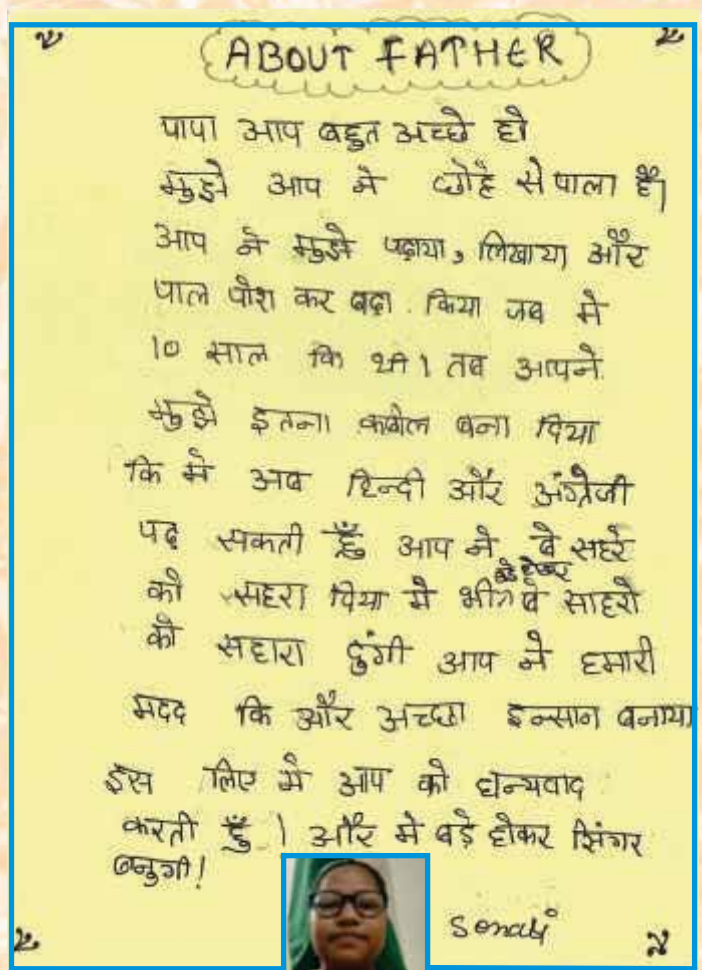 ABOUT FATHER
पापा आप बहुत अच्छे हो
मुझे आप ने छोटे से पाला है।
आप ने मुझे पढ़ाया, लिखाया और
पाल पोश कर बढ़ा. किया जब मे
10 साल कि थी। तब आपने
मुझे इतना काबील बना दिया
कि मे अब हिन्दी और अंग्रेजी
पढ़ सकती हुँ आप ने बे सहरे
को सहरा दिया मे भी बड़े होकर बे साहरो
को सहारा दुंगी आप ने हमारी
मदद कि और अच्छा इन्सान बनाया
इस लिए मे आप को धन्यवाद
करती हुँ । और मे बड़े होकर सिंगर
बनुगी!
Sonali